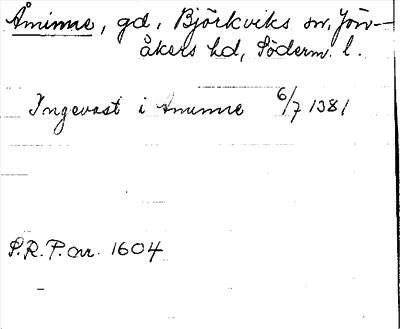 Åminne, gd, Björkviks sn, Jön-
åkers hd, Söderm. l.
Ingevast i Amunne 6/7 1381
S.R.P. nr. 1604